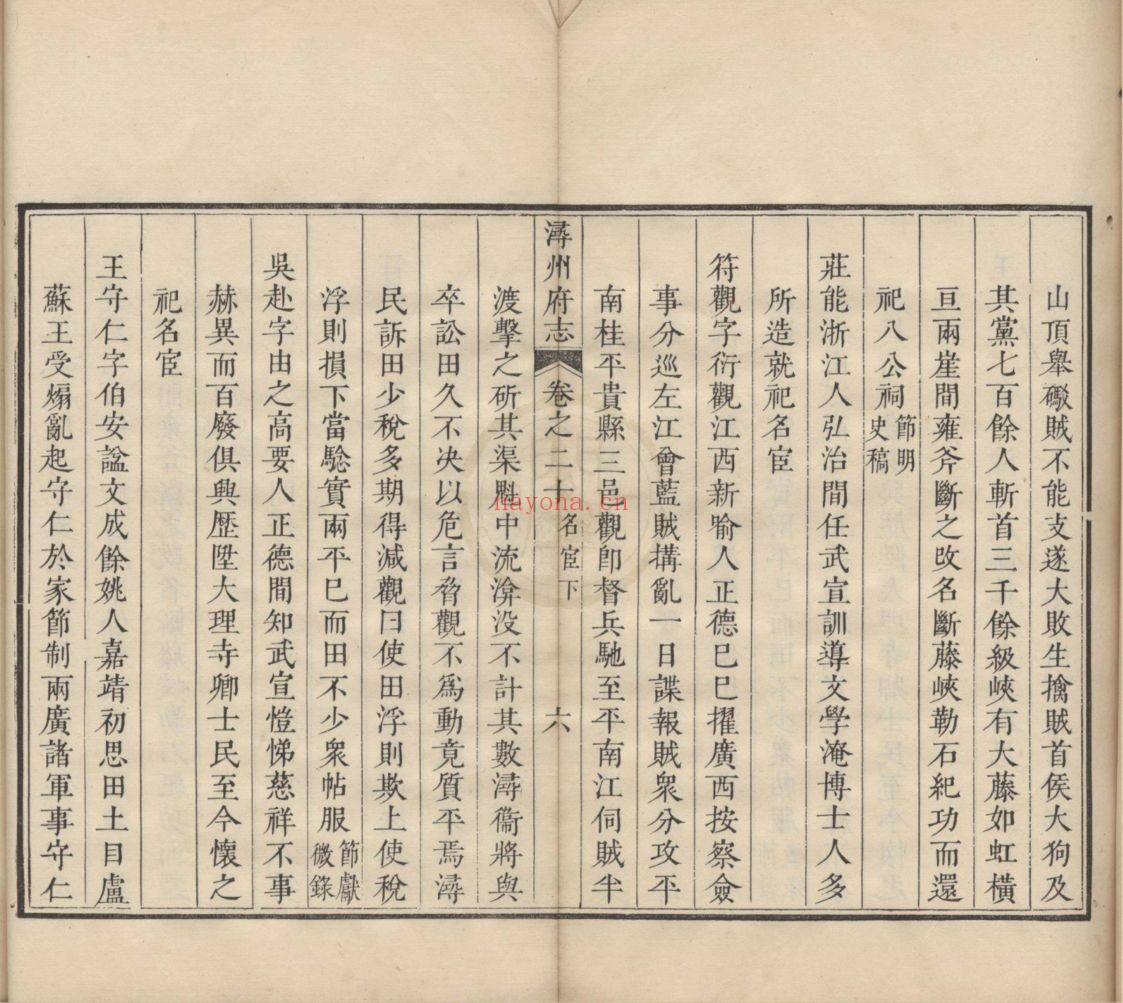 山頂舉礮賊不能支遂大敗生擒賊首侯大狗及
其黨七百餘人斬首三千餘級峽有大藤如虹橫
亘兩崖間雍斧斷之改名斷藤峽勒石紀功而還
祀八公祠節明史稿
莊能浙江人弘治間任武宣訓導文學淹博士人多
所造就祀名宦
符觀字衍觀江西新喻人正德巳巳擢廣西按察僉
事分巡左江會藍賊搆亂一日諜報賊衆分攻平
南桂平貴縣三邑觀卽督兵馳至平南江伺賊半
潯州府志 卷之二十 名宦下 六
渡擊之斫其渠魁中流渰没不計其數潯衞將與
卒訟田久不决以危言脅觀不爲動竟質平焉潯
民訴田少稅多期得減觀曰使田浮則欺上使稅
浮則損下當騐實兩平巳而田不少衆帖服節獻徵錄
吳赴字由之高要人正德間知武宣愷悌慈祥不事
赫異而百廢俱興歷陞大理寺卿士民至今懷之
祀名宦
王守仁字伯安諡文成餘姚人嘉靖初思田土目盧
蘇王受煽亂起守仁於家節制兩廣諸軍事守仁
nayona.cn